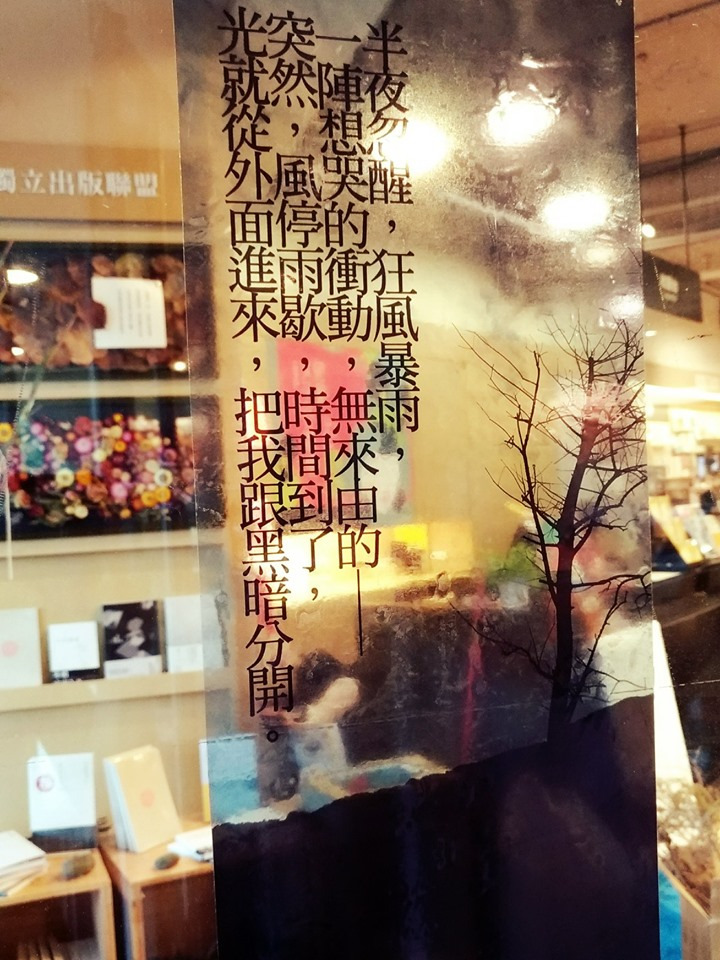 半夜忽醒，狂風暴雨，
一陣想哭的衝動，無來由的——
突然，風停雨歇，時間到了，
光就從外面進來，把我跟黑暗分開。
獨立出版聯盟